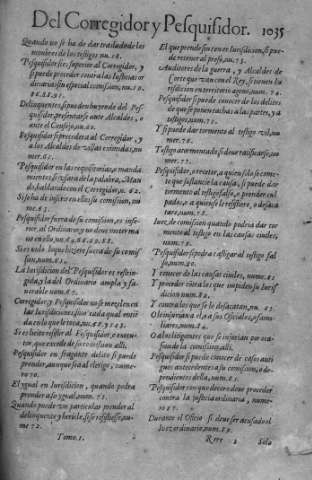 Del Corregidor y Pesquisidor. 1035
Quando no se ha de dar traslado de los
nombres de los testigos nu. 18.
Pesquisidor si es superior al Corregidor, y
si puede proceder contra las Justicias or
dinarias sin especial comission, nu.
Delinquentes, si pueden huyendo del Pes-
quisidor, presentarse ante Alcaldes, o
ante el Consejo, nu.
Pesquisidor si precedera al Corregidor, y
a los Alcaldes de villas eximidas, nu-
mer. 61.
Pesquisidor en las requisitorias, y manda
mientos si usara de la palabra, Man-
do, hablando con el Corregidor, n. 62.
Si ha de insertar en ellos su comission, nu-
me.
Pesquisidor fuera de su comission, es infe-
rior al Ordinario y no deve meter ma
no en ello, nu.
Si es nulo lo que hiziere fuera de su comis-
sion, num.
La Iurisdicion del Pesquisidor es restrin-
gida, y la del Ordinario ampla y fa-
uorable num.
Corregidor y Pesquisidor no se mezclen en
las Iurisdiciones, sino cada qual enti-
da en lo que le toca, nu.
Si es licito resistir al Pesquisidor, o execu-
tor, que excede de su comission alli.
Pesquisidor en fragante delito si puede
prender, aunque sea al clerigo, nume-
ro 70.
El ygual en Iurisdicion, quando podra
prender a su ygual, num. 71.
Quando puede un particular prender al
delinquente y herirle, si se resistiesse, nu-
me 72.
Tomo. 1.
El que prende sin tener Iurisdicion, si pue-
de retener al preso, nu. 73.
Auditores de la guerra, y Alcaldes de
Corte que van con el Rey, si tienen Iu-
risdicion en territorio ageno, num. 74.
Pesquisidor si puede conocer de los delitos
de que se ponen tachas a las partes, y a
testigos, num. 75.
Y si puede dar tormento al testigo vil, nu-
mer. 77.
Testigo atormentado, si deue ratificarse, nu-
mer.
Pesquisidor, o recetor, a quien solo se come-
te que sustancie la causa, si puede dar
tormento al testigo falso, o prender cul
pados, o a quien se le resistiere, o desaca
tare, num. 78.
Iuez, de comission quando podria dar tor-
mento al testigo en las causas ciuiles,
num. 79.
Pesquisidor si podra castigar al testigo fal
so, num. 80.
Y conocer de las causas ciuiles, nume. 81.
Y proceder contra los que impiden su Iurisf
dicion num. 82.
Y contra los que se le desacatan, nu.
O le injurian a el, o a sus Oficiales, o fa-
miliares, num. 84.
O a los litigantes que se injurian por oca-
sion de la comission, alli.
Pesquisidor si puede conocer de casos anti
guos antecedentes a su comission, o de-
pendientes della, num. 85.
Pesquisidor con que decoro deue proceder
contra la justicia ordinaria, nume-
ro 87.
Durante el Oficio si deue ser acusado el
Iuez ordinario, num.
Rrrr 2 Sola